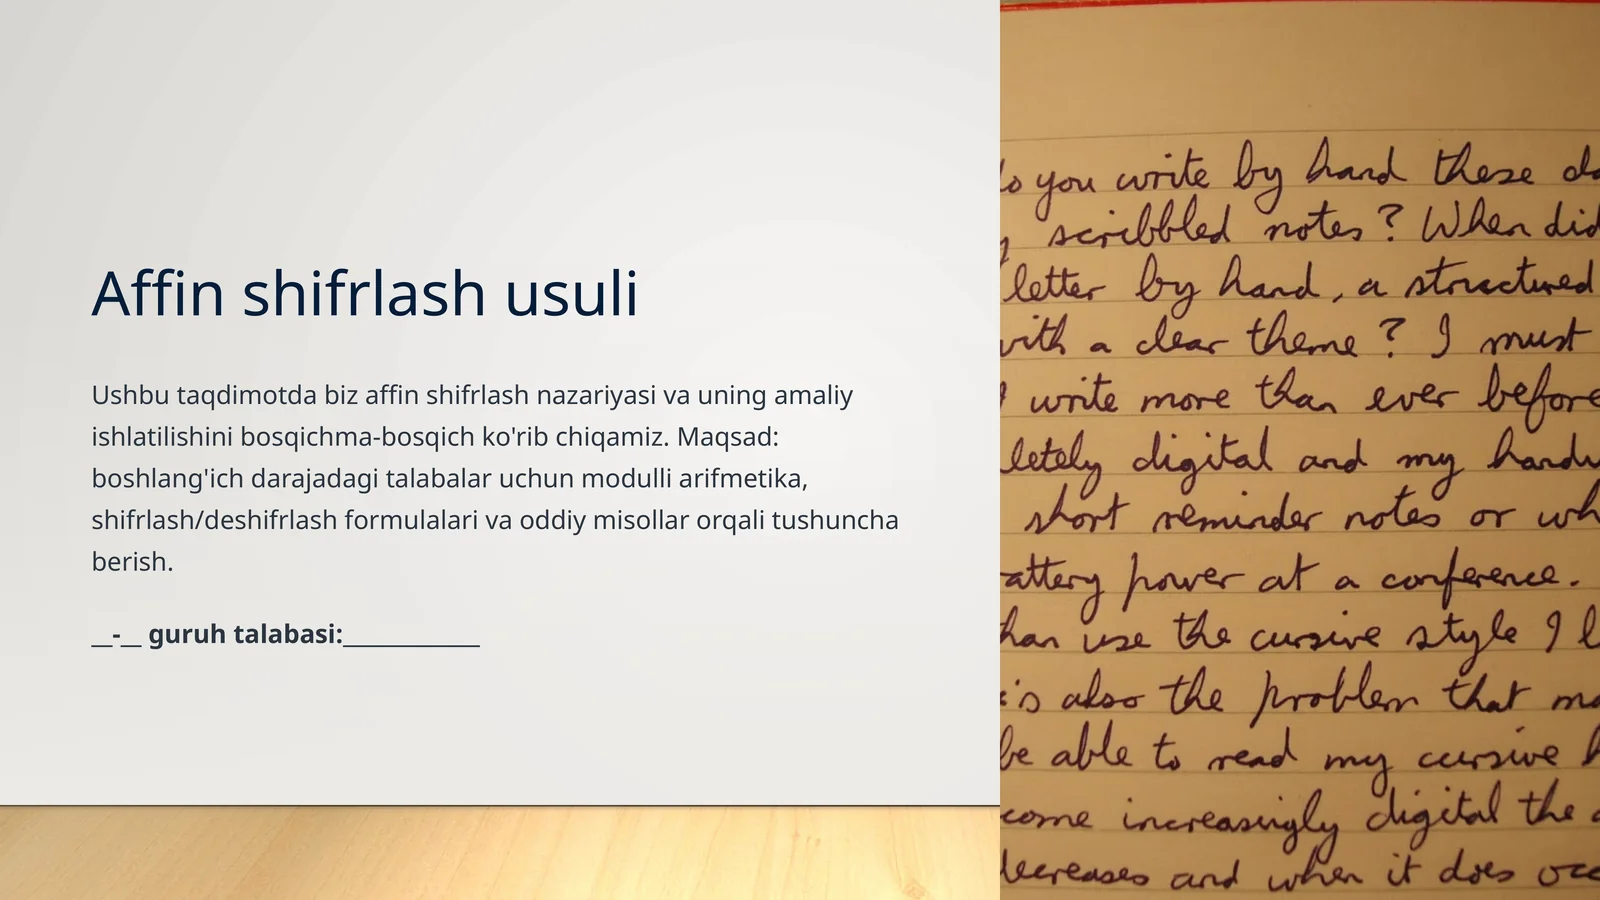 Affin shifrlash usuli
Ushbu taqdimotda biz affin shifrlash nazariyasi va uning amaliy
ishlatilishini bosqichma-bosqich ko'rib chiqamiz. Maqsad:
boshlang'ich darajadagi talabalar uchun modulli arifmetika,
shifrlash/deshifrlash formulalari va oddiy misollar orqali tushuncha
berish.
__-__ guruh talabasi:____________
you write by hand these
scribbled notes? When did
letter by hand, a structured
with a clear theme? I must
write more than ever before
digital and my
short reminder notes or
power at a conference.
use the cursive style I
is also the problem that
be able to read my cursive
come increasingly digital the
decreases and when it does